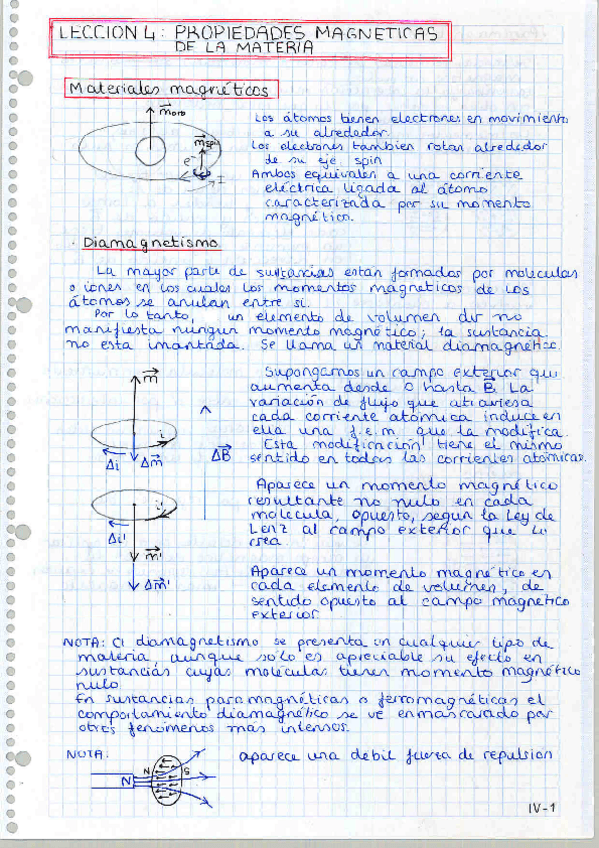 LECCION 4: PROPIEDADES MAGNETICAS
DE LA MATERIA
Materiales magnéticos
m orb
m spin
e-
I
Los átomos tienen electrones en movimiento
a su alrededor.
Los electrones tambien rotan alrededor
de su eje, spin
Ambos equivalen a una corriente
eléctrica ligada al átomo
caracterizada por su momento
magnético.
Diamagnetismo
La mayor parte de sustancias estan formadas por moleculas
o iones en los cuales los momentos magneticos de los
átomos se anulan entre si.
Por lo tanto, un elemento de volumen dv no
manifiesta ningun momento magnético; la sustancia
no esta imantada. Se llama un material diamagnético
m
i
Δi Δm
ΔB
Supongamos un campo exterior que
aumenta desde 0 hasta B. La
variación de flujo que atraviesa
cada corriente atómica induce en
ella una f.e.m. que la modifica.
Esta modificación tiene el mismo
sentido en todas las corrientes atómicas.
i'
Δi'
m'
Δm'
Aparece un momento magnético
resultante no nulo en cada
molécula, opuesto, segun la Ley de
Lenz al campo exterior que lo
crea.
Aparece un momento magnético en
cada elemento de volumen, de
sentido opuesto al campo magnético
exterior
NOTA: El diamagnetismo se presenta en cualquier tipo de
materia, aunque sólo es apreciable su efecto en
sustancias cuyas moléculas tienen momento magnético
nulo
En sustancias paramagnéticas o ferromagnéticas el
comportamiento diamagnético se vé enmascarado por
otros fenómenos más intensos.
NOTA:
N
N S
aparece una debil fuerza de repulsion
IV-1